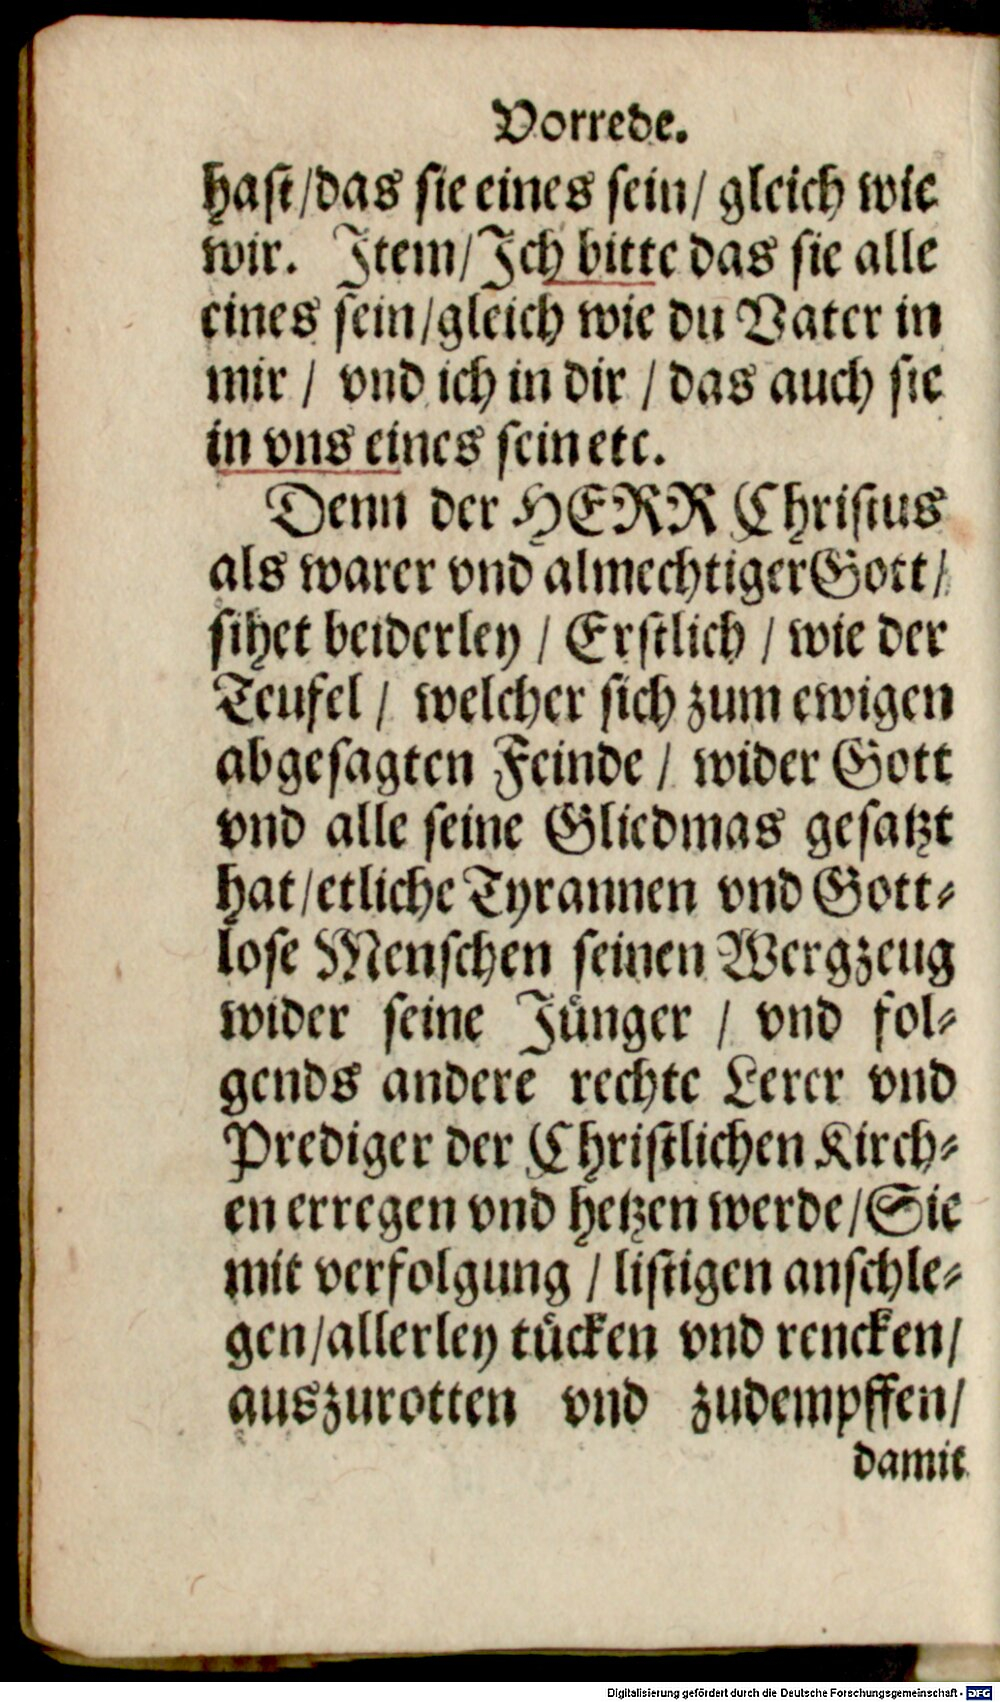 Vorrede.
hast/das sie eines sein/ gleich wie
wir. Item/Ich bitte das sie alle
eines sein/gleich wie du Vater in
mir / vnd ich in dir / das auch sie
in vns eines sein etc.
Denn der HERR Christus
als warer vnd almechtiger Gott/
sihet beiderley / Erstlich / wie der
Teufel / welcher sich zum ewigen
abgesagten Feinde / wider Gott
vnd alle seine Gliedmas gesatzt
hat/etliche Tyrannen vnd Gott-
lose Menschen seinen Wergzeug
wider seine Jünger / vnd fol-
gends andere rechte Lerer vnd
Prediger der Christlichen Kirch-
en erregen vnd hetzen werde/Sie
mit verfolgung / listigen anschle-
gen/allerley tücken vnd rencken/
auszurotten vnd zudempffen/
damit
Digitalisierung gefördert durch die Deutsche Forschungsgemeinschaft - DFG